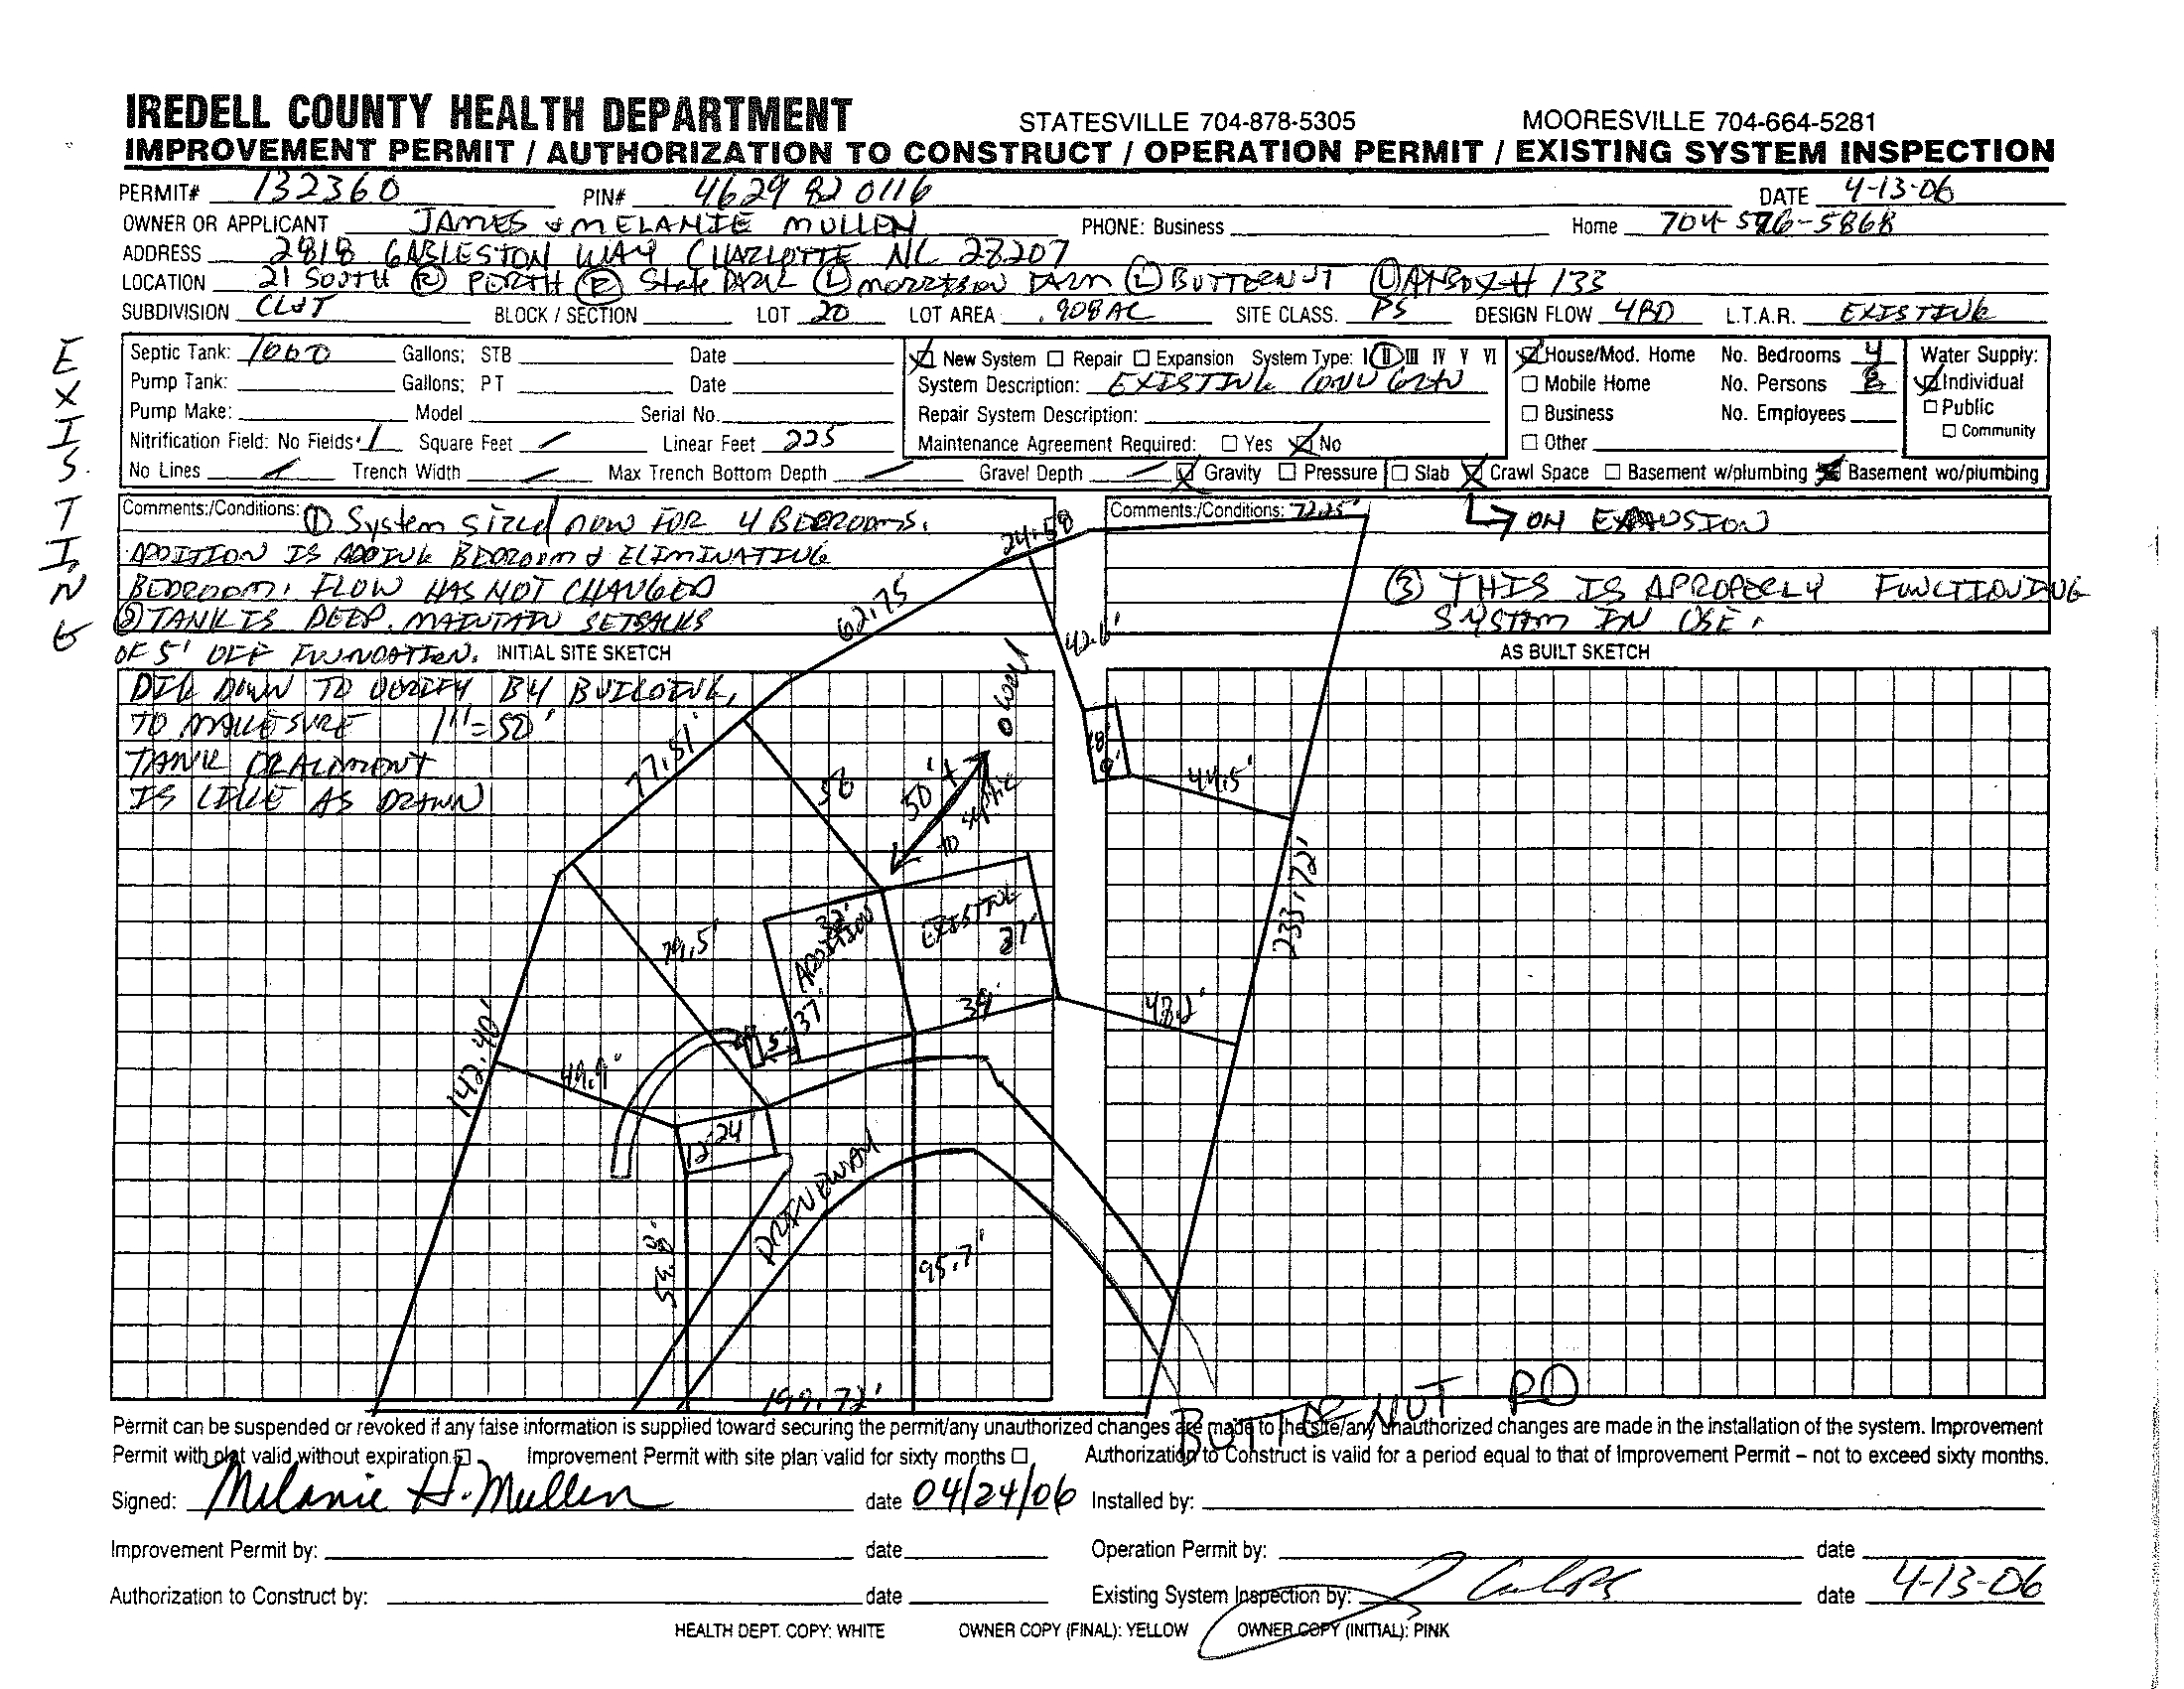 IREDELL COUNTY HEALTH DEPARTMENT STATESVILLE 704-878-5305 MOORESVILLE 704-664-5281
IMPROVEMENT PERMIT / AUTHORIZATION TO CONSTRUCT / OPERATION PERMIT / EXISTING SYSTEM INSPECTION
PERMIT# 132360 PIN# 4629 82 0116 DATE 4-13-06
OWNER OR APPLICANT JAMES & MELANIE MULLEN PHONE: Business Home 704-576-5868
ADDRESS 2818 GABLESTON WAY CHARLOTTE NC 28207
LOCATION 21 SOUTH (R) PERTH (R) State PARK (L) MORRISON FARM (L) BUTTERNUT (L) # 133
SUBDIVISION LOT 20 LOT AREA .908 AC SITE CLASS. PS DESIGN FLOW 4BD L.T.A.R. EXISTING
BLOCK / SECTION
EXISTING
Septic Tank: 1000 Gallons; STB Date
Pump Tank: Gallons; PT Date
Pump Make: Model Serial No.
Nitrification Field: No Fields 1 Square Feet / Linear Feet 225
No Lines Trench Width Max Trench Bottom Depth Gravel Depth Gravity Pressure Slab Crawl Space Basement w/plumbing Basement wo/plumbing
New System Repair Expansion System Type: I II III IV V VI
System Description: EXISTING CONV GRAV
Repair System Description:
Maintenance Agreement Required: Yes No
House/Mod. Home No. Bedrooms 4
Mobile Home No. Persons
Business No. Employees
Other
Water Supply:
Individual
Public
Community
Comments:/Conditions: (1) System sized now FOR 4 BEDROOMS.
ADDITION IS ADDING BEDROOM & ELIMINATING
BEDROOM. FLOW HAS NOT CHANGED
(2) TANK IS DEEP. MAINTAIN SETBACKS
OF 5' OFF FOUNDATION. INITIAL SITE SKETCH
DIG DOWN TO VERIFY BY BUILDING,
TO MAKE SURE 1"=50'
TANK PLACEMENT
IS LIKE AS DRAWN
Comments:/Conditions: 72.25'
ON EXPANSION
(3) THIS IS A PROPERLY FUNCTIONING
SYSTEM IN USE.
AS BUILT SKETCH
24.58
62.75
42.6'
77.51'
58
50'+
to septic
WELL
18'
9'
44.5'
233.72'
79.5'
32'
ADDITION
37'
EXISTING
37'
39'
43.2'
5'
142.40'
49.9'
12 24
DRIVEWAY
54.8'
95.7'
199.72'
BUTTERNUT RD
Permit can be suspended or revoked if any false information is supplied toward securing the permit/any unauthorized changes are made to the site/any unauthorized changes are made in the installation of the system. Improvement
Permit with plat valid without expiration Improvement Permit with site plan valid for sixty months Authorization to Construct is valid for a period equal to that of Improvement Permit – not to exceed sixty months.
Signed: Melanie H. Mullen date 04/24/06 Installed by:
Improvement Permit by: date Operation Permit by: date
Authorization to Construct by: date Existing System Inspection by: date 4-13-06
HEALTH DEPT. COPY: WHITE OWNER COPY (FINAL): YELLOW OWNER COPY (INITIAL): PINK